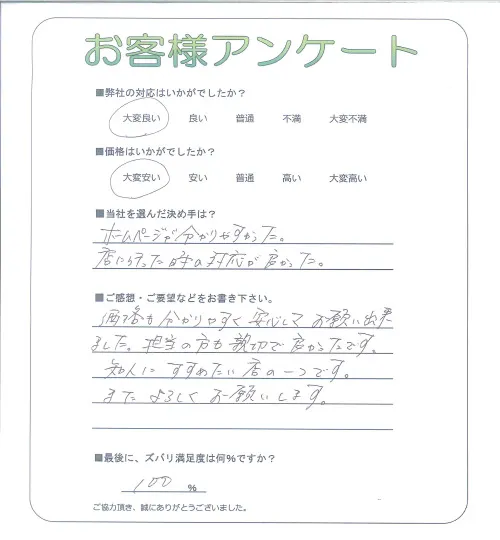 お客様アンケート
■弊社の対応はいかがでしたか？
大変良い 良い 普通 不満 大変不満
■価格はいかがでしたか？
大変安い 安い 普通 高い 大変高い
■当社を選んだ決め手は？
ホームページが分かりやすかった。
店に行った時の対応が良かった。
■ご感想・ご要望などをお書き下さい。
価格も分かりやすく安心してお願い出来
ました。担当の方も親切で良かったです。
知人にすすめたい店の一つです。
またよろしくお願いします。
■最後に、ズバリ満足度は何％ですか？
100 ％
ご協力頂き、誠にありがとうございました。